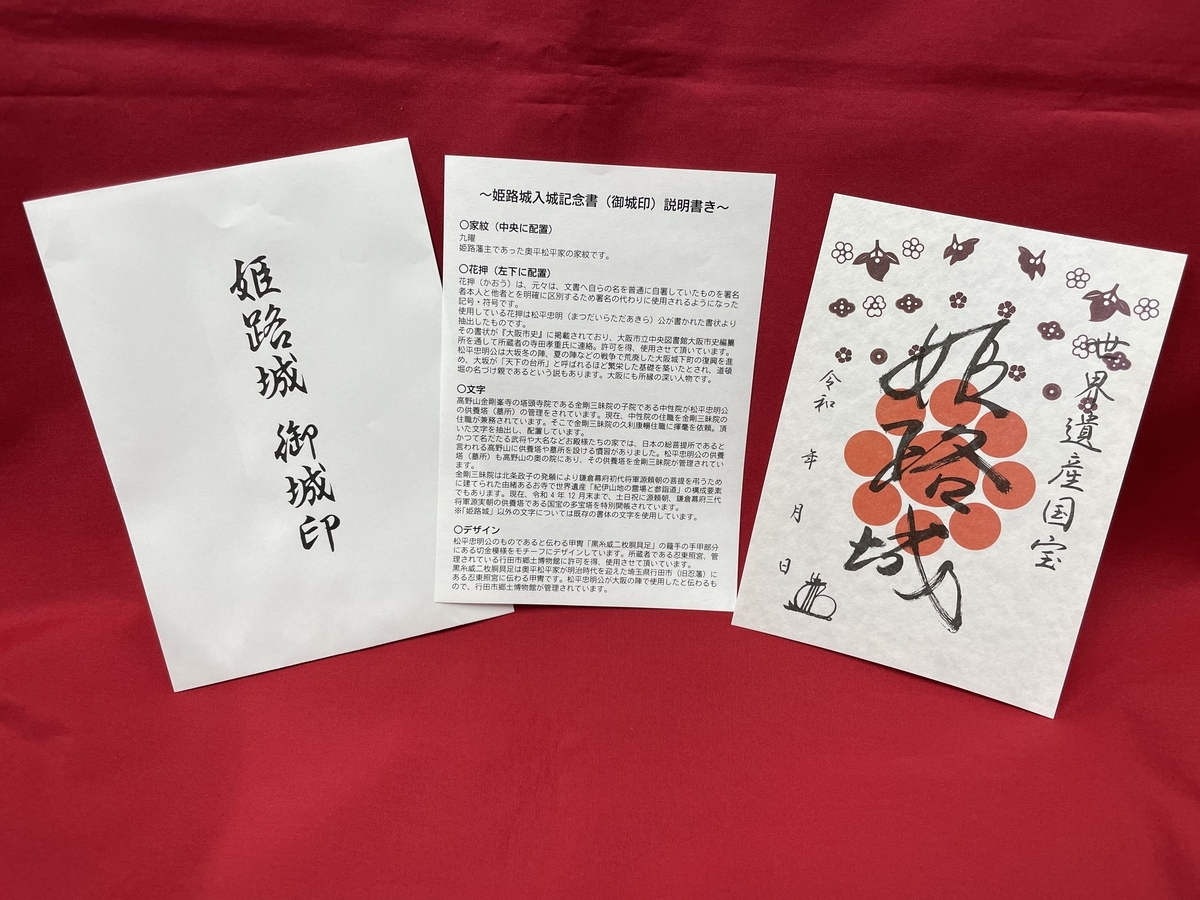 姫路城 御城印
～姫路城入城記念書（御城印）説明書き～
〇家紋（中央に配置）
九曜
姫路藩主であった奥平松平家の家紋です。
〇花押（左下に配置）
花押（かおう）は、元々は、文書へ自らの名を普通に自署していたものを署名
者本人と他者とを明確に区別するため署名の代わりに使用されるようになった
記号・符号です。
使用している花押は松平忠明（まつだいらただあきら）公が書かれた書状より
抽出したものです。
その書状が『大阪市史』に掲載されており、大阪市立中央図書館大阪市史編纂
所を通して所蔵者の寺田孝重氏に連絡。許可を得、使用させて頂いています。
松平忠明公は大坂冬の陣、夏の陣などの戦争で荒廃した大阪城下町の復興を進
め、大坂が「天下の台所」と呼ばれるほど繁栄した基礎を築いたとされ、道頓
堀の名づけ親であるという説もあります。大阪にも所縁の深い人物です。
〇文字
高野山金剛峯寺の塔頭寺院である金剛三昧院の子院である中性院が松平忠明公
の供養塔（墓所）の管理をされています。現在、中性院の住職が金剛三昧院の
住職が兼務されています。そこで金剛三昧院の久利康暢住職に揮毫を依頼。頂
いた文字を抽出し、配置しています。
かつて名だたる武将や大名などお殿様たちの家では、日本の総菩提所であると
言われる高野山に供養塔や墓所を設ける慣習がありました。松平忠明公の供養
塔（墓所）も高野山の奥の院にあり、その供養塔を金剛三昧院が管理されてい
ます。
金剛三昧院は北条政子の発願により鎌倉幕府初代将軍源頼朝の菩提を弔うため
に建てられた由緒あるお寺で世界遺産「紀伊山地の霊場と参詣道」の構成要素
でもあります。現在、令和4年12月末まで、土日祝に源頼朝、鎌倉幕府三代
将軍源実朝の供養塔である国宝の多宝塔を特別開帳されています。
※「姫路城」以外の文字については既存の書体の文字を使用しています。
〇デザイン
松平忠明公のものであると伝わる甲冑「黒糸威二枚胴具足」の籠手の手甲部分
にある切金模様をモチーフにデザインしています。所蔵者である忍東照宮、管
理されている行田市郷土博物館に許可を得、使用させて頂いています。
黒糸威二枚胴具足は奥平松平家が明治時代を迎えた埼玉県行田市（旧忍藩）に
ある忍東照宮に伝わる甲冑です。松平忠明公が大阪の陣で使用したと伝わるも
ので、行田市郷土博物館が管理されています。
世界遺産国宝
姫路城
令和 年 月 日